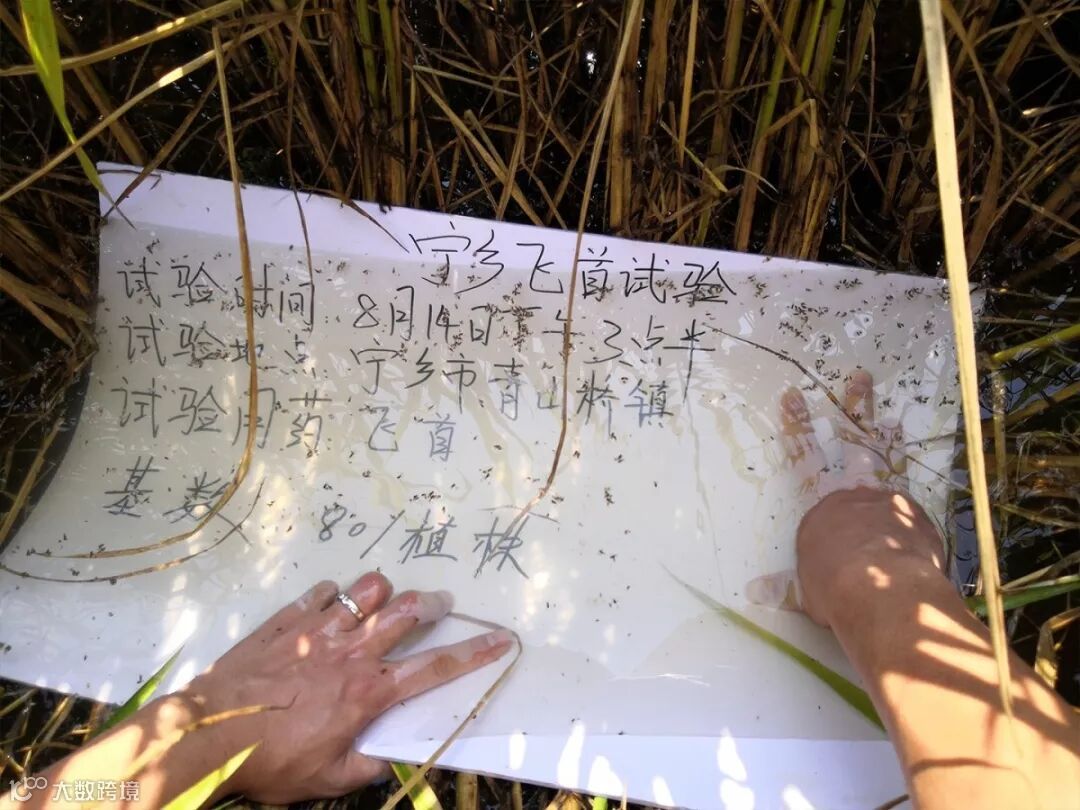 宁乡飞首试验
试验时间 8月14日下午3点半
试验地点 宁乡市青山桥镇
试验用药 飞首
基数 80/植株
大数跨境